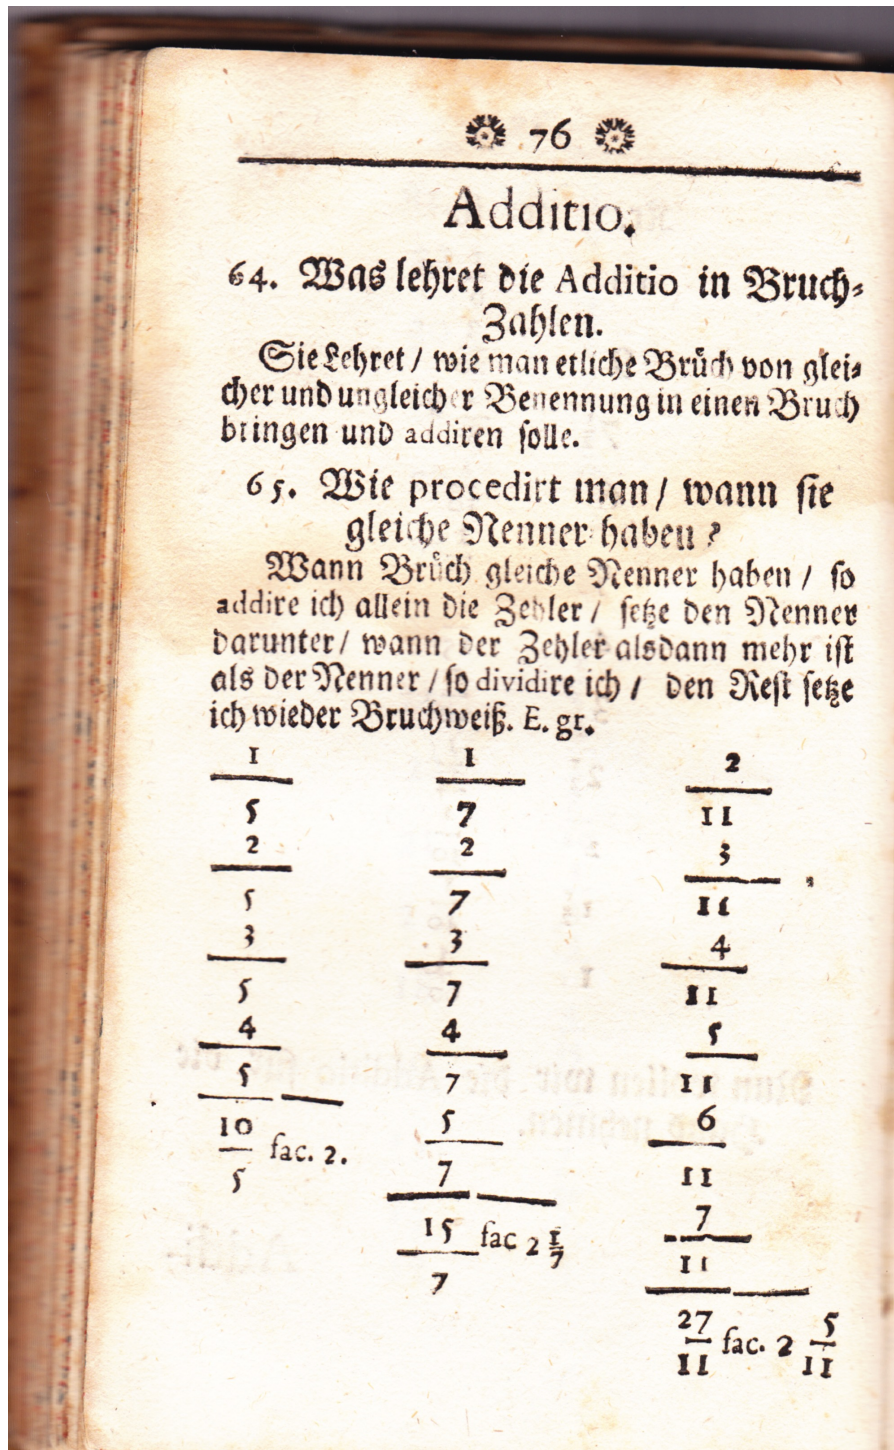 76
Additio.
64. Was lehret die Additio in Bruch-
Zahlen.
Sie Lehret / wie man etliche Brüch von glei-
cher und ungleicher Benennung in einen Bruch
bringen und addiren solle.
65. Wie procedirt man / wann sie
gleiche Nenner haben?
Wann Brüch gleiche Nenner haben / so
addire ich allein die Zehler / setze den Nenner
darunter / wann der Zehler alsdann mehr ist
als der Nenner / so dividire ich / den Rest setze
ich wieder Bruchweiß. E. gr.
1 1 2
5 7 11
2 2 3
5 7 11
3 3 4
5 7 11
4 4 5
5 7 11
10 5 6
5 fac. 2. 7 11
15 7
7 fac 2 1/7 11
27
11 fac. 2 5/11